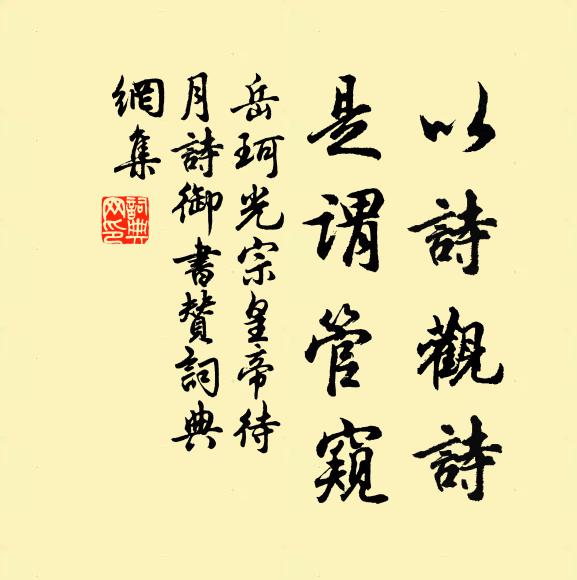 以詩觀詩
是謂管窺
岳珂光宗皇帝待
月詩御書贊詞典
網集
詞典網印